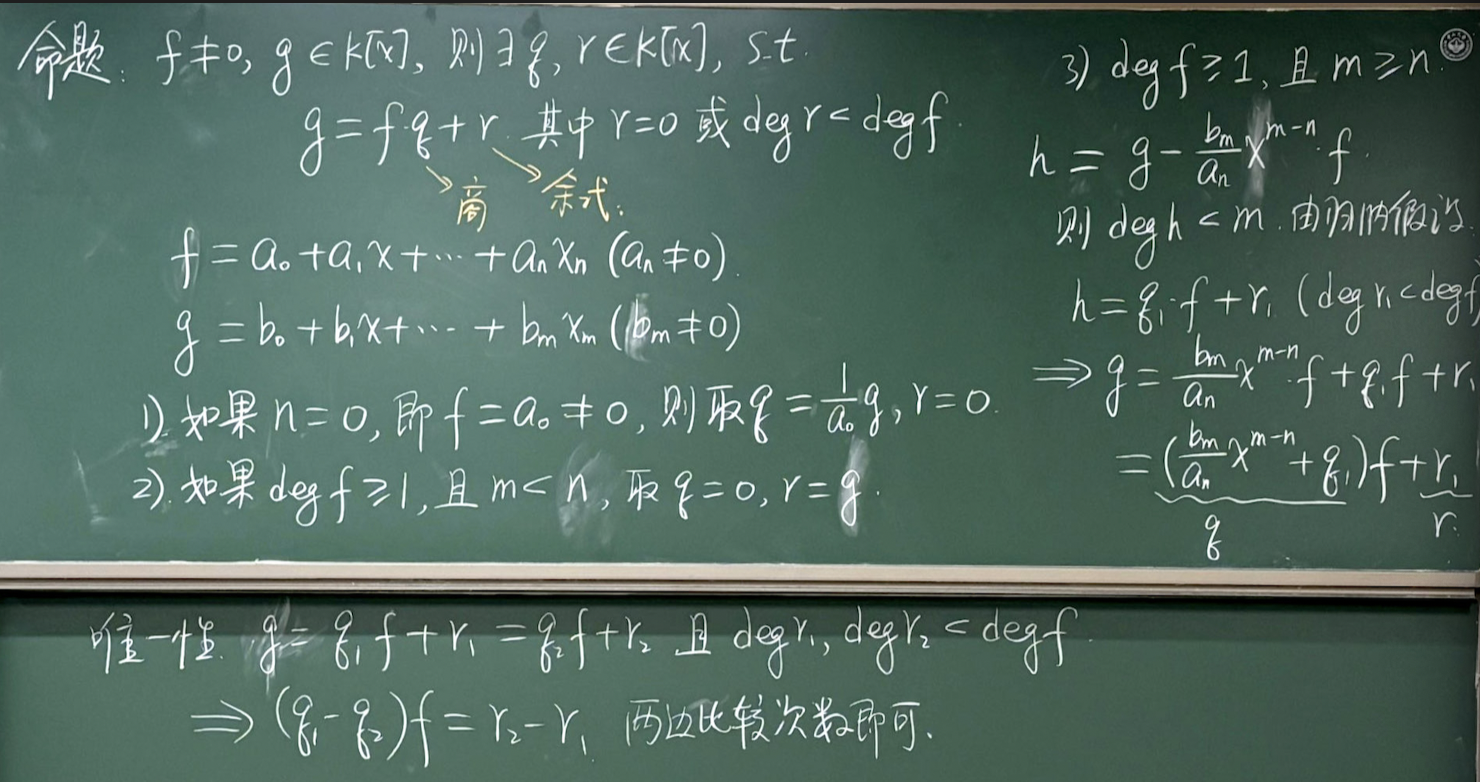 命题: f≠0, g∈k[x], 则∃q, r∈k[x], s.t.
g=f·q+r. 其中r=0 或 deg r < deg f.
商 余式.
f = a₀+a₁x+⋯+aₙxₙ (aₙ≠0).
g = b₀+b₁x+⋯+bₘxₘ (bₘ≠0)
1). 如果 n=0, 即 f=a₀≠0, 则取q=1/a₀ g, r=0.
2). 如果 deg f ≥1, 且 m<n, 取 q=0, r=g.
3) deg f ≥ 1, 且 m≥n.
h = g - bₘ/aₙ x^{m-n}·f.
则 deg h < m. 由归纳假设.
h=q₁·f+r₁ (deg r₁<deg f)
⇒ g = bₘ/aₙ x^{m-n}·f+q₁f+r₁
=(bₘ/aₙ x^{m-n}+q₁)f+r₁
q r.
唯一性. g= q₁f+r₁ =q₂f+r₂ 且 deg r₁, deg r₂ < deg f.
⇒(q₁-q₂)f = r₂-r₁ 两边比较次数即可.